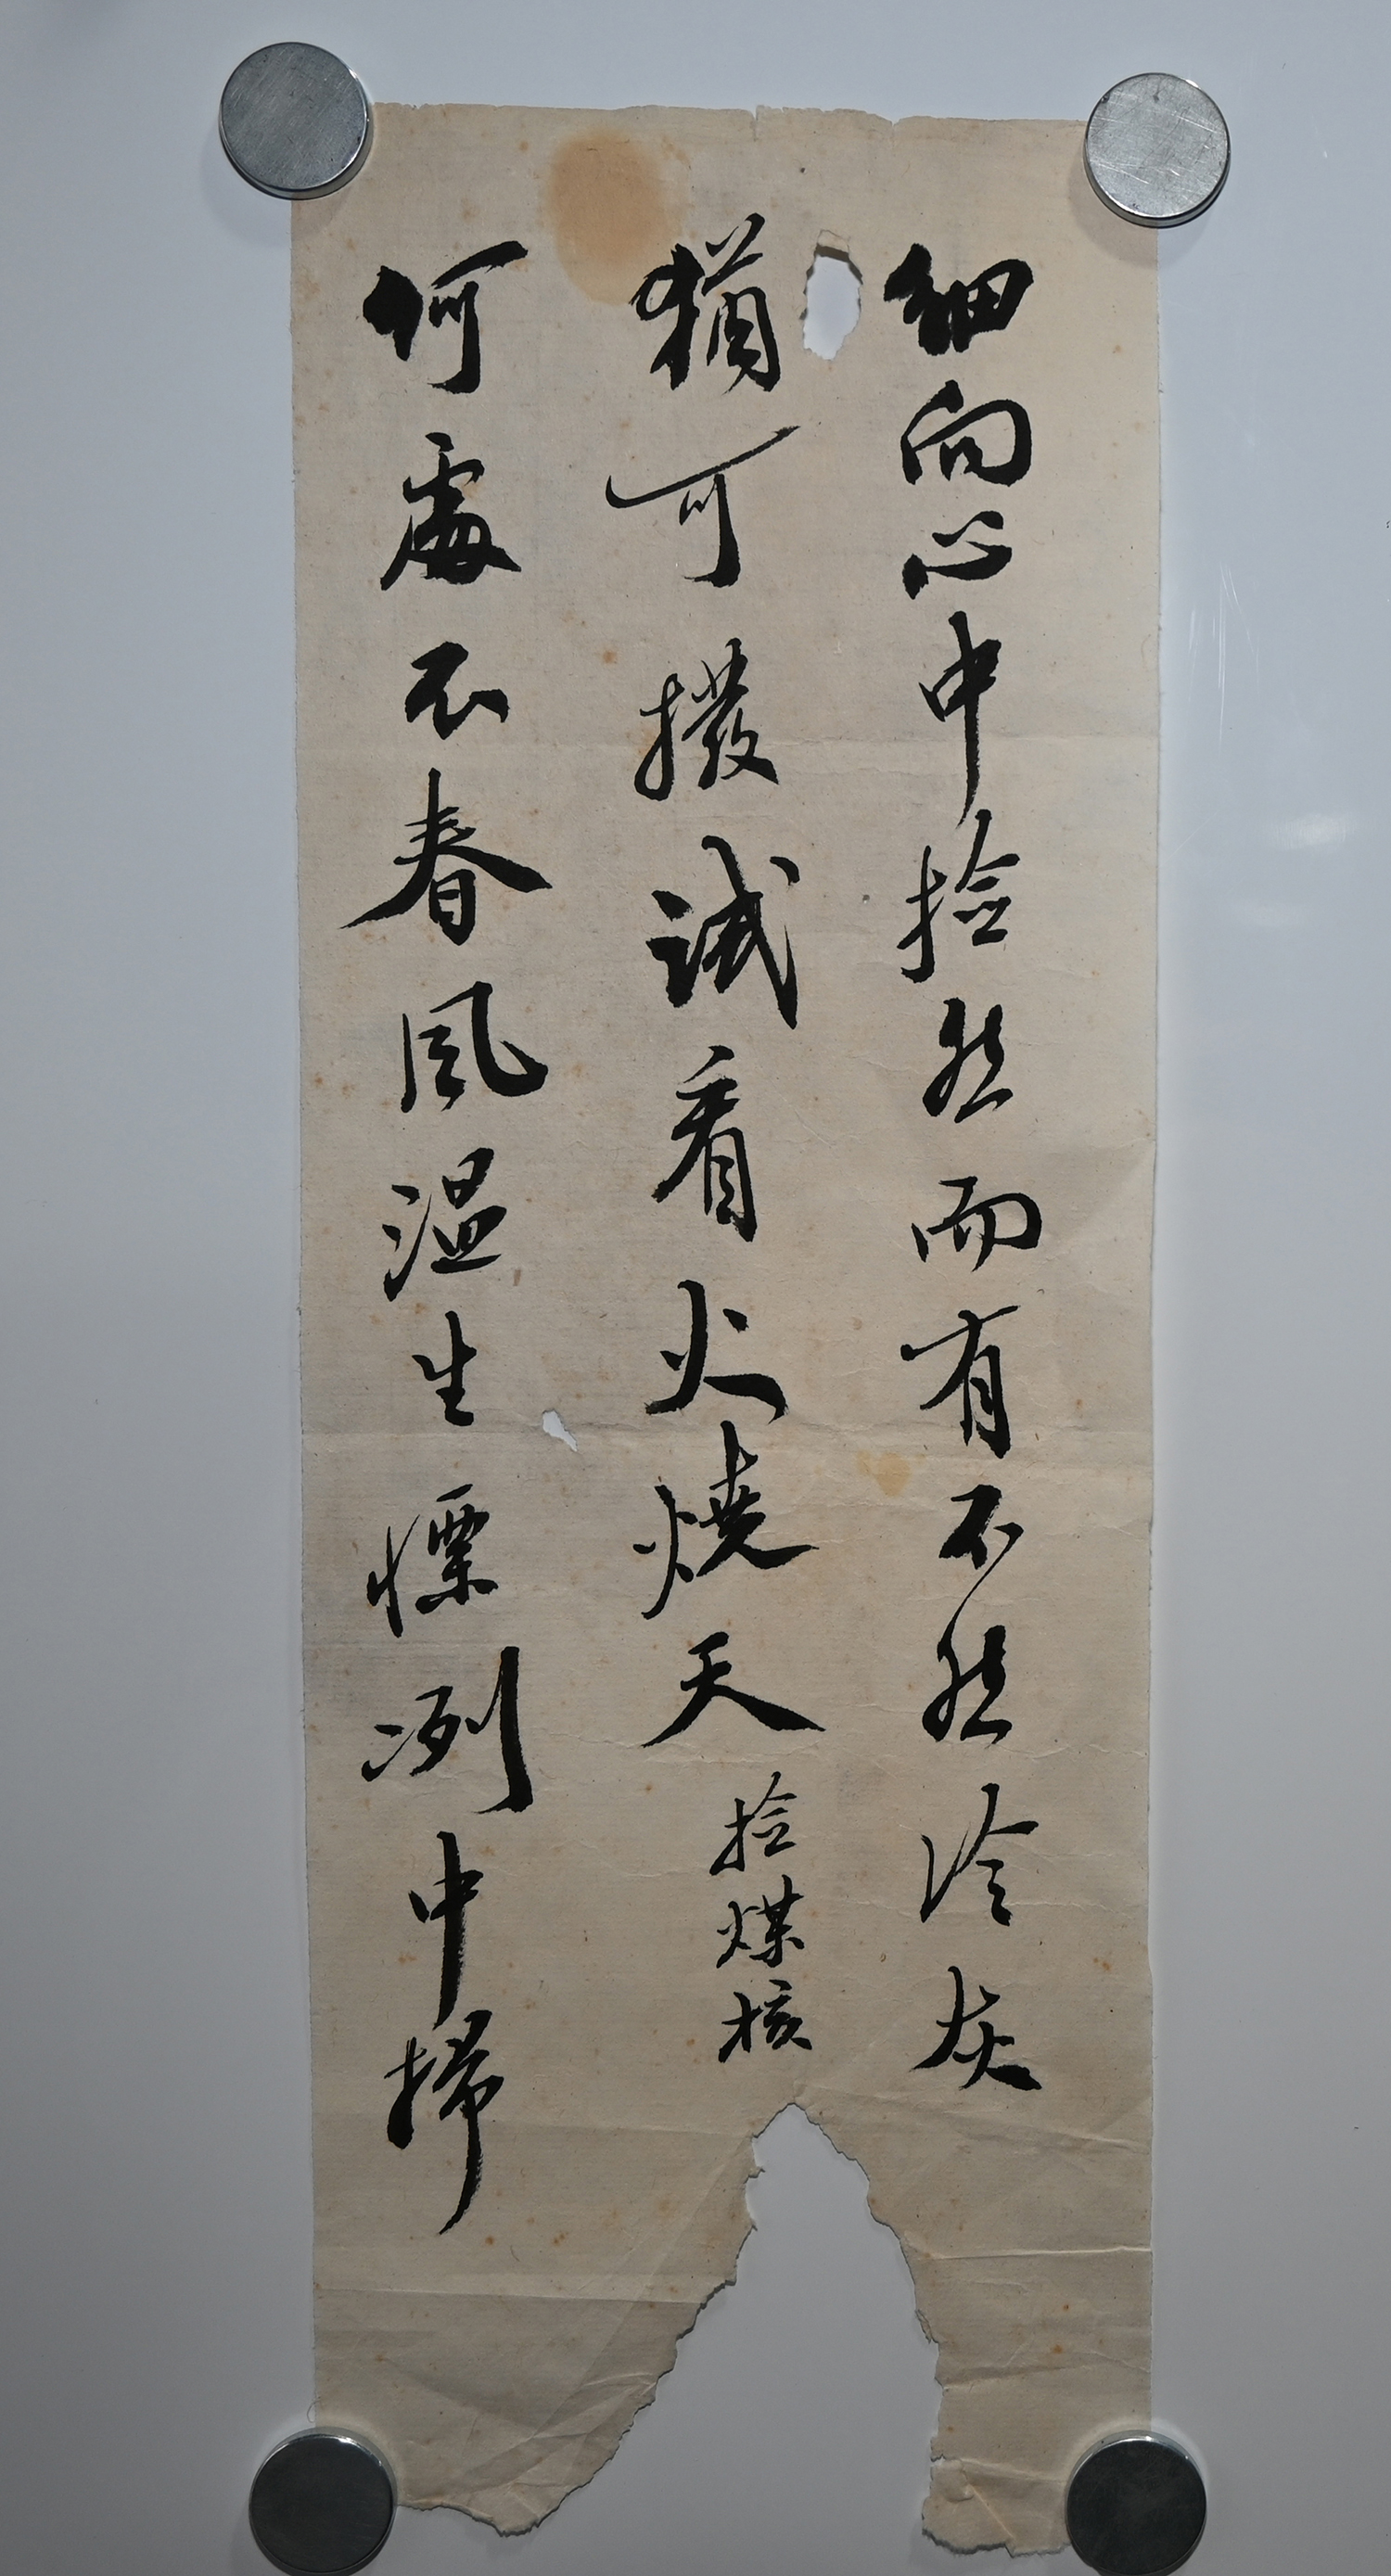 細向心中撿然而有不然冷灰
猶可撥試看火燒天撿煤核
何處不春風温生慄冽中掃